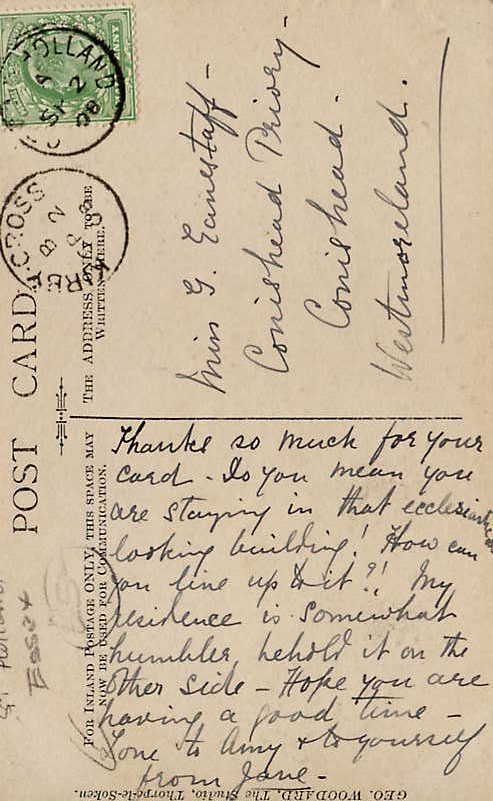 POST CARD
THE ADDRESS ONLY TO BE
WRITTEN HERE.
FOR INLAND POSTAGE ONLY, THIS SPACE MAY
NOW BE USED FOR COMMUNICATION.
HOLLAND
SP 2
08
CROSS
Miss G.
Conishead Priory -
Conishead.
Westmoreland.
Thanks so much for your
card - Do you mean you
are staying in that ecclesiastical
looking building! How can
you live up to it?! My
residence is somewhat
humbler, behold it on the
other side - Hope you are
having a good time -
Love to Amy & to yourself
from Jane -
GEO. WOODARD, The Studio, Thorpe-le-Soken.
Essex